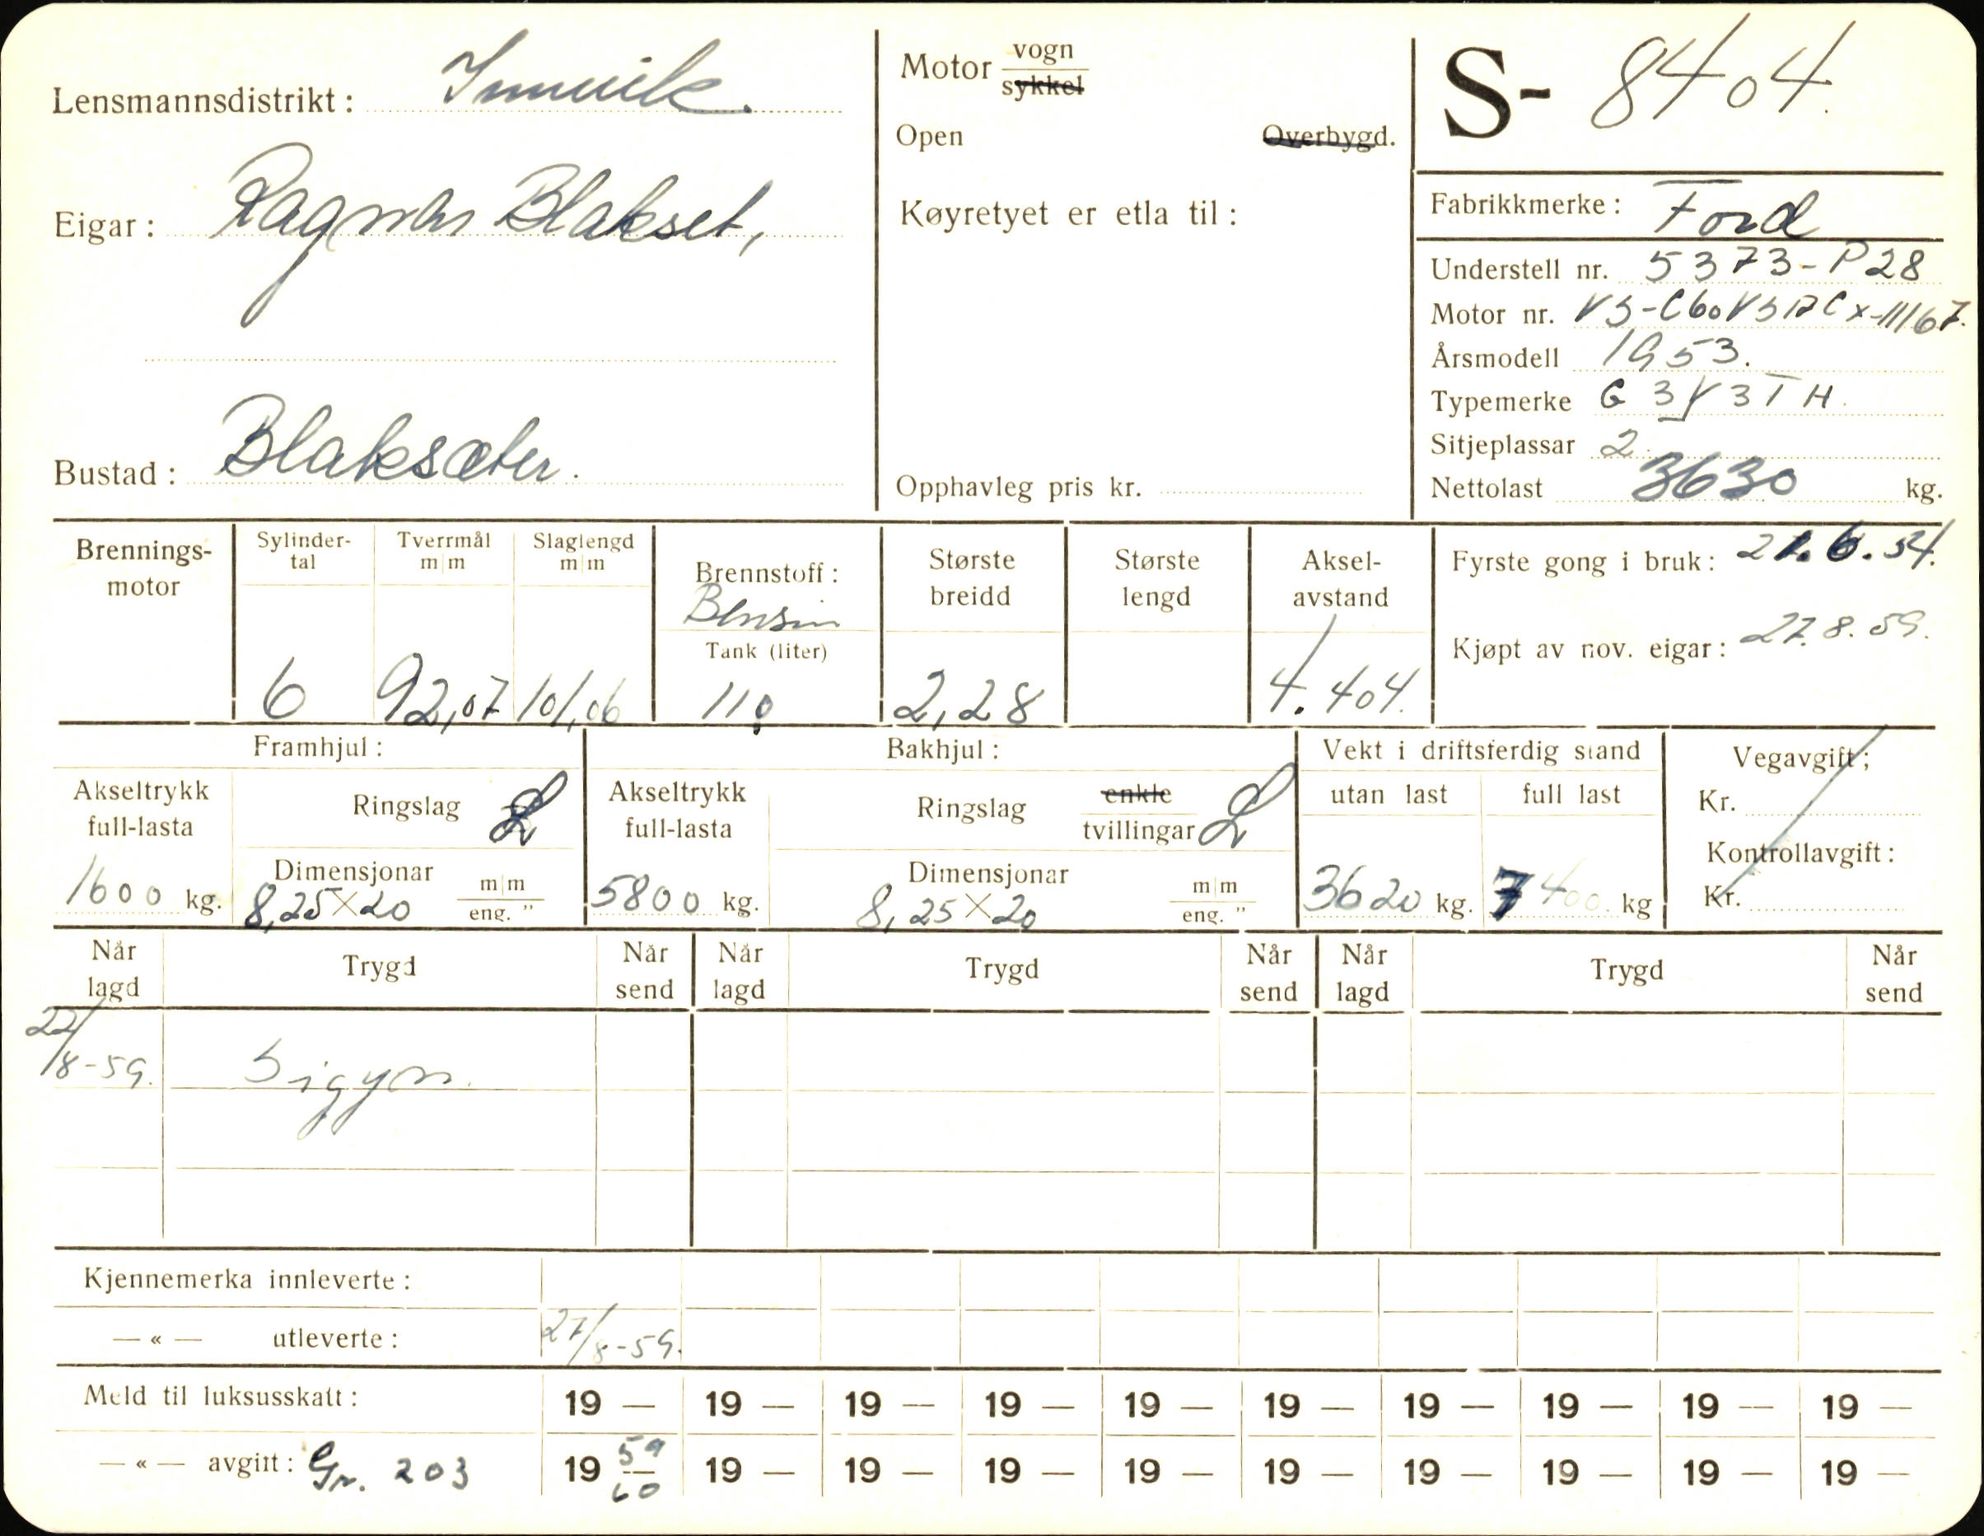 Lensmannsdistrikt: Innvik.
Eigar: Ragnar Blakset,
Bustad: Blaksæter.
Motor vogn
sykkel
Open Overbygd.
Køyretyet er etla til:
Opphavleg pris kr.
S- 8404.
Fabrikkmerke: Ford
Understell nr. 5373-P28
Motor nr.
Årsmodell 1953.
Typemerke
Sitjeplassar 2.
Nettolast 3630 kg.
Brennings-
motor
Sylinder-
tal
6
Tverrmål
m|m
92,07
Slaglengd
m|m
101,06
Brennstoff:
Bensin
Tank (liter)
110
Største
breidd
2,28
Største
lengd
Aksel-
avstand
4.404.
Fyrste gong i bruk: 21.6.54.
Kjøpt av nov. eigar: 27.8.59.
Framhjul:
Akseltrykk
full-lasta
1600 kg.
Ringslag L
Dimensjonar
8,25×20
m|m
eng. "
Bakhjul:
Akseltrykk
full-lasta
5800 kg.
Ringslag enkle
tvillingar L
Dimensjonar
8,25×20
m|m
eng. "
Vekt i driftsferdig stand
utan last full last
3620 kg. 7400 kg
Vegavgift;
Kr.
Kontrollavgift:
Kr.
Når
lagd Trygd Når
send Når
lagd Trygd Når
send Når
lagd Trygd Når
send
22/8-59. Sigyn.
Kjennemerka innleverte:
— « — utleverte: 27/8-59.
Meld til luksusskatt: 19 — 19 — 19 — 19 — 19 — 19 — 19 — 19 — 19 — 19 —
— « — avgift: Gr. 203 19 59 — 60 19 — 19 — 19 — 19 — 19 — 19 — 19 — 19 — 19 —